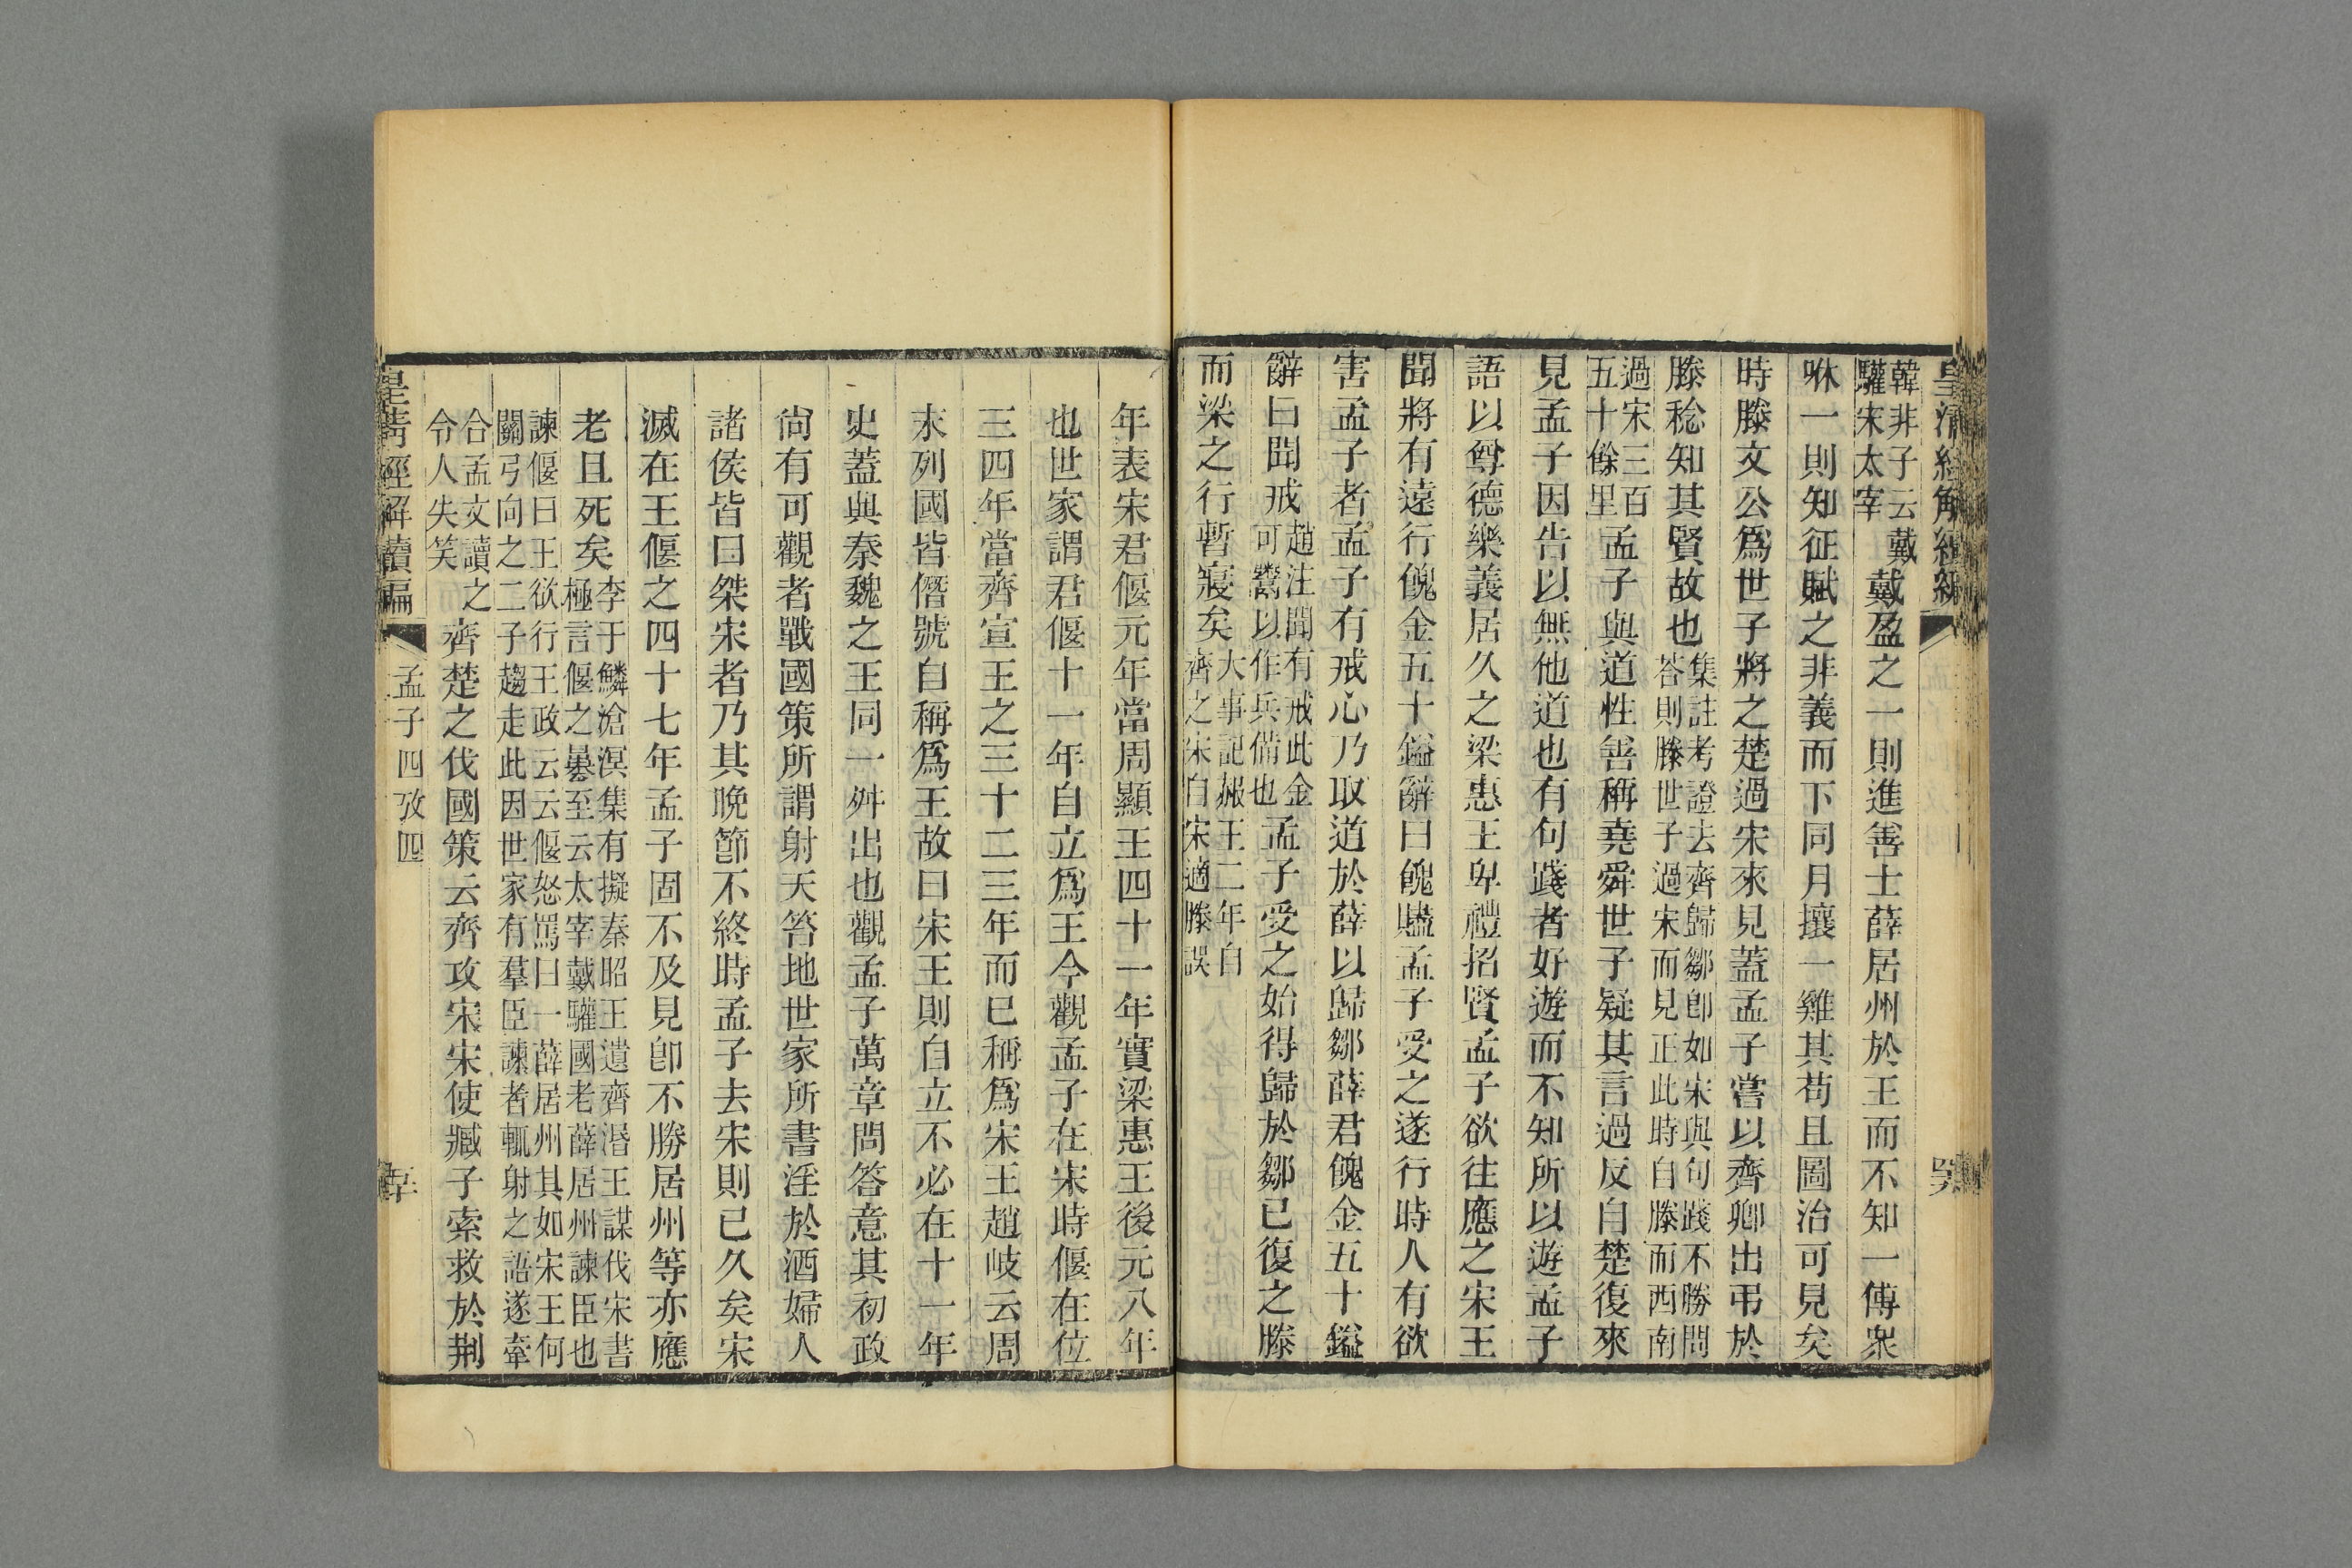 韓非子云戴
驩宋太宰
戴盈之一則進善士薛居州於王而不知一傅衆
咻一則知征賦之非義而下同月攘一雞其苟且圖治可見矣
時滕文公爲世子將之楚過宋來見蓋孟子嘗以齊卿出弔於
滕稔知其賢故也
集註考證去齊歸鄒卽如宋與句踐不勝問
答則滕世子過宋而見正此時自滕而西南
過宋三百
五十餘里
孟子與道性善稱堯舜世子疑其言過反自楚復來
見孟子因告以無他道也有句踐者好遊而不知所以遊孟子
語以尊德樂義居久之梁惠王卑禮招賢孟子欲往應之宋王
聞將有遠行餽金五十鎰辭曰餽贐孟子受之遂行時人有欲
害孟子者孟子有戒心乃取道於薛以歸鄒薛君餽金五十鎰
辭曰聞戒
趙注聞有戒此金
可鬻以作兵備也
孟子受之始得歸於鄒已復之滕
而梁之行暫寢矣
大事記赧王二年自
齊之宋自宋適滕誤
年表宋君偃元年當周顯王四十一年實梁惠王後元八年
也世家謂君偃十一年自立爲王今觀孟子在宋時偃在位
三四年當齊宣王之三十二三年而已稱爲宋王趙岐云周
末列國皆僭號自稱爲王故曰宋王則自立不必在十一年
史蓋與秦魏之王同一舛出也觀孟子萬章問答意其初政
尙有可觀者戰國策所謂射天笞地世家所書淫於酒婦人
諸侯皆曰桀宋者乃其晚節不終時孟子去宋則已久矣宋
滅在王偃之四十七年孟子固不及見卽不勝居州等亦應
老且死矣
李于鱗滄溟集有擬秦昭王遺齊湣王謀伐宋書
極言偃之暴至云太宰戴驩國老薛居州諫臣也
諫偃曰王欲行王政云云偃怒罵曰一薛居州其如宋王何
關弓向之二子趨走此因世家有羣臣諫者輒射之語遂牽
合孟文讀之
令人失笑
齊楚之伐國策云齊攻宋宋使臧子索救於荆
皇淸經解續編
孟子四攷四